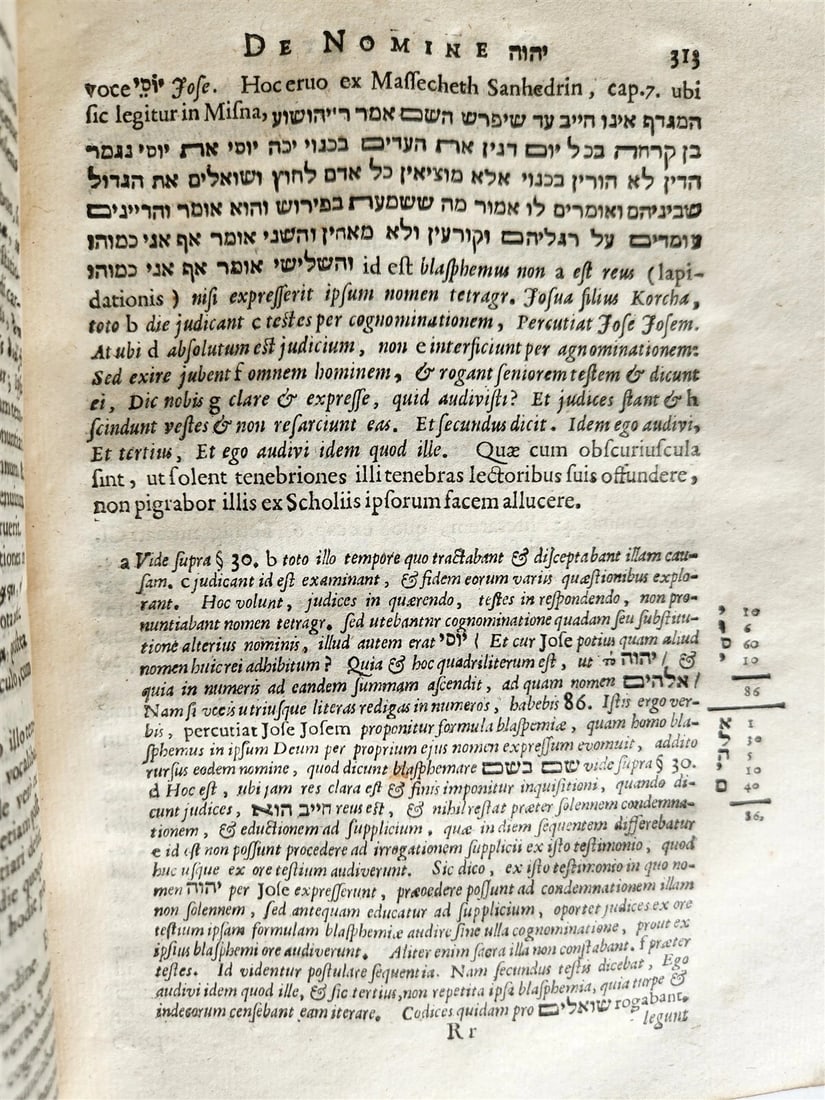 DE NOMINE יהוה 313
voce יוֹסֵי Jose. Hoc eruo ex Massecheth Sanhedrin, cap. 7. ubi
sic legitur in Misna, המגדף אינו חייב עד שיפרש השם אמר ר״יהושוע
בן קרחה בכל יום דנין את העדים בכנוי יכה יוסי את יוסי נגמר
הדין לא הורין בכנוי אלא מוציאין כל אדם לחוץ ושואלים את הגדול
שביניהם ואומרים לו אמור מה ששמעת בפירוש והוא אומר והדיינים
עומדים על רגליהם וקורעין ולא מאחין והשני אומר אף אני כמוהו
והשלישי אומר אף אני כמוהו id est blasphemus non a est reus (lapi-
dationis) nisi expresserit ipsum nomen tetragr. Josua filius Korcha,
toto b die judicant c testes per cognominationem, Percutiat Jose Josem.
At ubi d absolutum est judicium, non e interficiunt per agnominationem:
Sed exire jubent f omnem hominem, & rogant seniorem testem & dicunt
ei, Dic nobis g clare & expresse, quid audivisti? Et judices stant & h
scindunt vestes & non resarciunt eas. Et secundus dicit. Idem ego audivi,
Et tertius, Et ego audivi idem quod ille. Quæ cum obscuriuscula
sint, ut solent tenebriones illi tenebras lectoribus suis offundere,
non pigrabor illis ex Scholiis ipsorum facem allucere.
a Vide supra § 30. b toto illo tempore quo tractabant & disceptabant illam cau-
sam. c judicant id est examinant, & fidem eorum variis quæstionibus explo-
rant. Hoc volunt, judices in quærendo, testes in respondendo, non pro-
nuntiabant nomen tetragr. sed utebantnr cognominatione quadam seu substitu-
tione alterius nominis, illud autem erat יוֹסֵי ( Et cur Jose potius quam aliud
nomen huic rei adhibitum? Quia & hoc quadriliterum est, ut יהוה / &
quia in numeris ad eandem summam ascendit, ad quam nomen אלהים /
Nam si vocis utriusque literas redigas in numeros, habebis 86. Istis ergo ver-
bis, percutiat Jose Josem proponitur formula blasphemiæ, quam homo bla-
sphemus in ipsum Deum per proprium ejus nomen expressum evomuit, addito
rursus eodem nomine, quod dicunt blasphemare שם בשם vide supra § 30.
d Hoc est, ubi jam res clara est & finis imponitur inquisitioni, quando di-
cunt judices, חייב הוא reus est, & nihil restat præter solennem condemna-
tionem, & eductionem ad supplicium, quæ in diem sequentem differebatur
e id est non possunt procedere ad irrogationem supplicii ex isto testimonio, quod
huc usque ex ore testium audiverunt. Sic dico, ex isto testimonio in quo no-
men יהוה per Jose expresserunt, præcedere possunt ad condemnationem illam
non solennem, sed antequam educatur ad supplicium, oportet judices ex ore
testium ipsam formulam blasphemiæ audire sine ulla cognominatione, prout ex
ipsius blasphemi ore audiverunt. Aliter enim sacra illa non constabant. f præter
testes. Id videntur postulare sequentia. Nam secundus testis dicebat, Ego
audivi idem quod ille, & sic tertius, non repetita ipsa blasphemia, quia turpe &
indecorum censebant eam iterare. Codices quidam pro שואלים rogabant,
legunt
R r
י 10
ו 6
ס 60
י 10
86
א 1
ל 30
ה 5
י 10
ם 40
86.